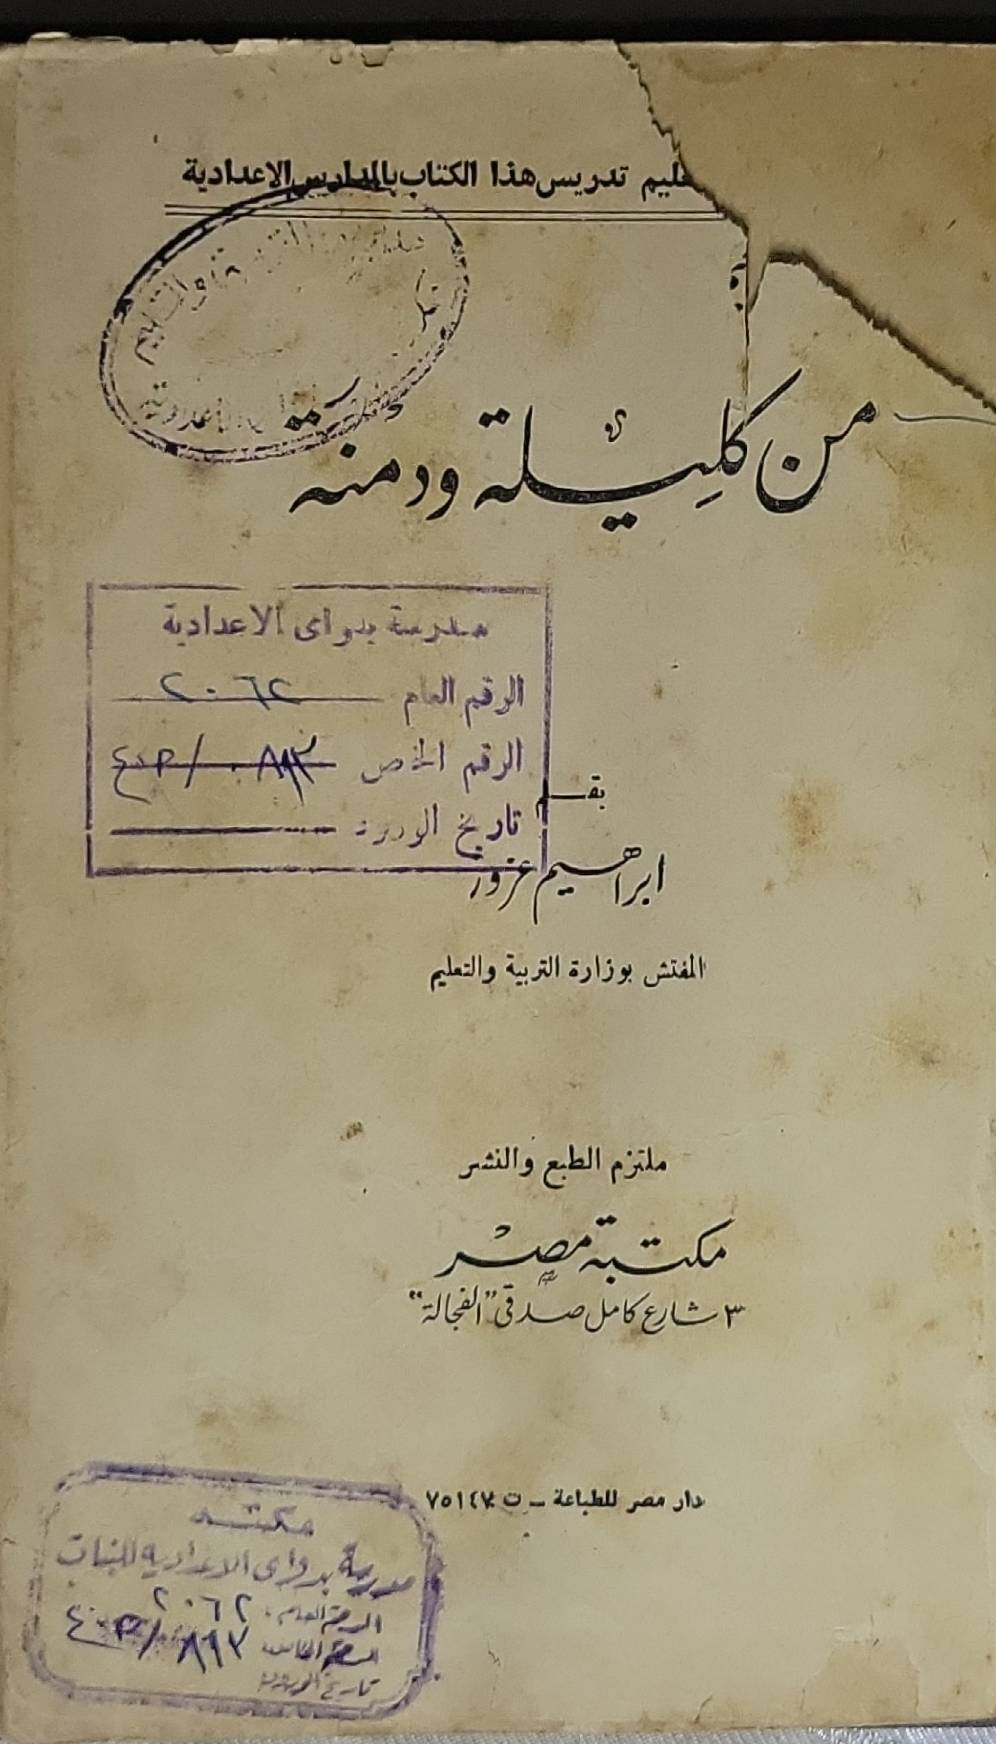 تدريس هذا الكتاب بالمدارس الاعدادية
من كليلة ودمنة
مدرسة بدواى الاعدادية
الرقم العام ٢٠٦٢
الرقم الخاص
تاريخ الورود
بقلم
ابراهيم عزوز
المفتش بوزارة التربية والتعليم
ملتزم الطبع والنشر
مكتبة مصر
٣ شارع كامل صدقى "الفجالة"
دار مصر للطباعة - ت ٧٥١٤٧
مكتبة
مدرسة بدواى الاعدادية للبنات
الرقم العام ٢٠٦٢
تاريخ الورود